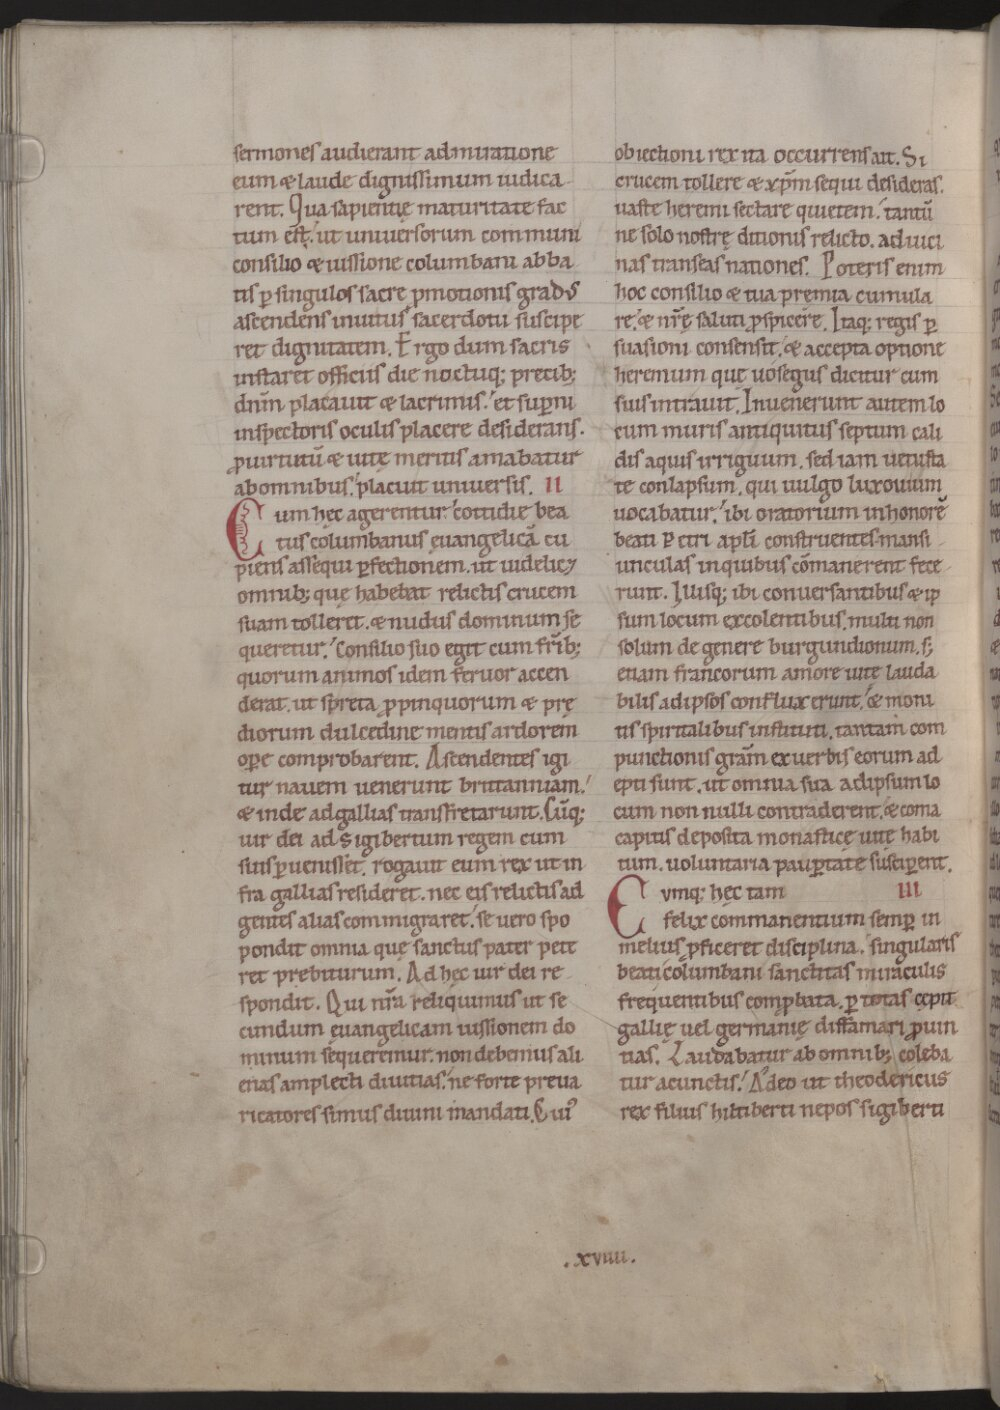 sermones audierant admiratione
eum & laude dignissimum iudica
rent. Qua sapientię maturitate fac
tum est. ut uniuersorum communi
consilio & iussione columbani abba
tis ꝑ singulos sacre ꝓmotionis gradus
ascendens inuitus sacerdotii suscipe
ret dignitatem. Ergo dum sacris
instaret officiis die noctuq; precib;
dnm̄ placauit & lacrimis. et suꝑni
inspectoris oculis placere desiderans.
ꝓ uirtutū & uitę meritis amabatur
ab omnibus. placuit uniuersis. II
Cum hec agerentur cottidie bea
tus columbanus euangelicā cu
piens assequi ꝑfectionem. ut uidelicet
omnib; quę habebat relictis crucem
suam tolleret. & nudus dominum se
queretur. Consilio suo egit cum fr̄ib;
quorum animos idem feruor accen
derat. ut spreta ꝓpinquorum & prę
diorum dulcedine mentis ardorem
oꝑe comprobarent. Ascendentes igi
tur nauem uenerunt brittanniam.
& inde ad gallias transfretarunt. Cūq;
uir dei ad sigibertum regem cum
suis ꝑuenisset. rogauit eum rex ut in
fra gallias resideret. nec eis relictis ad
gentes alias commigraret. se uero spo
pondit omnia que sanctus pater pete
ret prębiturum. Ad hęc uir dei re
spondit. Qui nr̄a reliquimus ut se
cundum euangelicam iussionem do
minum sequeremur. non debemus ali
enas amplecti diuitias. ne forte preua
ricatores simus diuini mandati. Cuiꝰ
obiectioni rex ita occurrens ait. Si
crucem tollere & xp̄m sequi desideras.
uaste heremi sectare quietem. tantū
ne solo nostrę ditionis relicto. ad uici
nas transeas nationes. Poteris enim
hoc consilio & tua premia cumula
re. & nr̄ę saluti ꝓspicere. Itaq; regis ꝑ
suasioni consensit. & accepta optione
heremum quę uosegus dicitur cum
suis intrauit. Inuenerunt autem lo
cum muris antiquitus septum cali
dis aquis irriguum. sed iam uetusta
te conlapsum. qui uulgo luxouium
uocabatur. ibi oratorium in honorē
beati Petri apłi construentes mansi
unculas in quibus cōmanerent fece
runt. Illisq; ibi conuersantibus & ip
sum locum excolentibus. multi non
solum de genere burgundionum. s;
etiam francorum amore uitę lauda
bilis ad ipsos confluxerunt. & moni
tis spiritalibus instituti. tantam com
punctionis gram̄ ex uerbis eorum ad
epti sunt. ut omnia sua ad ipsum lo
cum non nulli contraderent. & coma
capitis deposita monasticę uitę habi
tum. uoluntaria pauꝑtate susciꝑent.
Cumq; hęc tam III
felix commanentium semꝑ in
melius ꝓficeret disciplina. singularis
beati columbani sanctitas miraculis
frequentibus comꝓbata. ꝑ totas cępit
gallię uel germanię diffamari ꝓuin
tias. Laudabatur ab omnib; coleba
tur a cunctis. Adeo ut theodericus
rex filius hiltiberti nepos sigiberti
.xviiii.